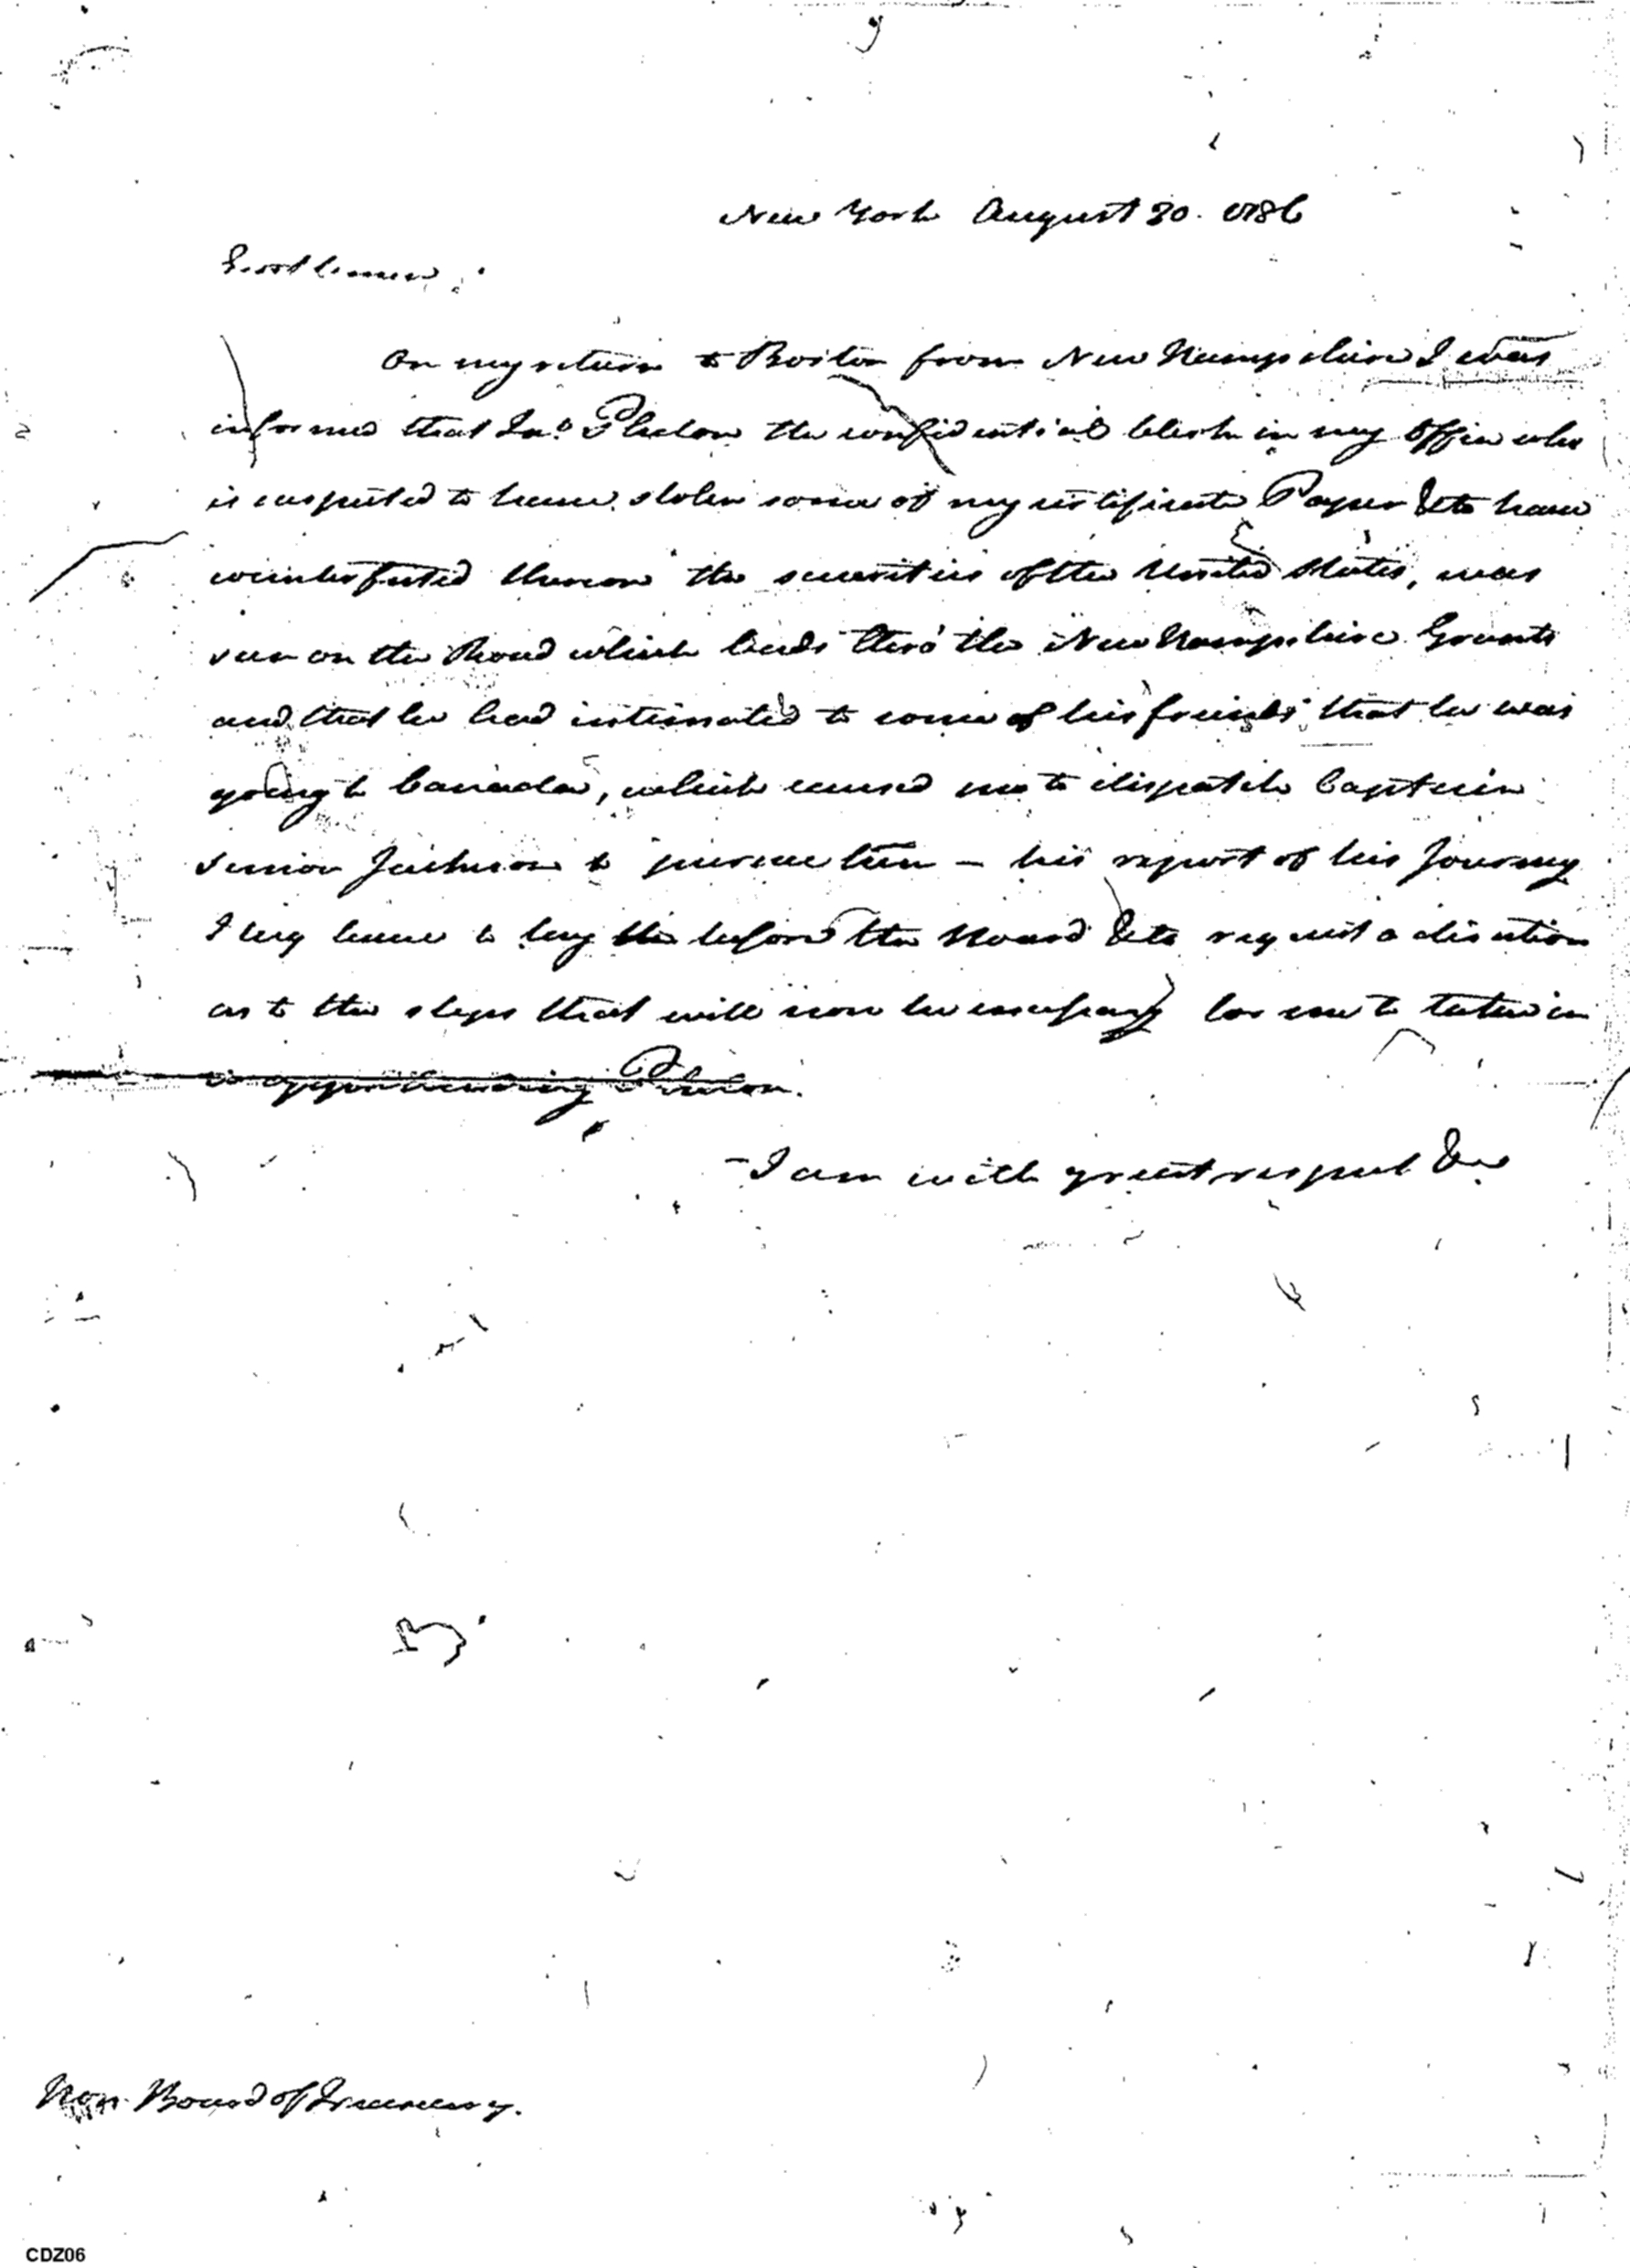 New York August 30. 1786
Gentlemen,
On my return to Boston from New Hampshire I was
informed that Jno. Phelon the confidential Clerk in my Office who
is suspected to have stolen some of my certificate Paper & to have
counterfeited thereon the securities of the United States, was
seen on the Road which leads thro' the New Hampshire Grants
and that he had intimated to some of his friends that he was
going to Canada, which caused me to dispatch Captain
Simon Jackson to pursue him – his report of his Journey
I beg leave to lay before the Board & to request a direction
as to the steps that will now be necessary for me to take in
apprehending Phelon.
I am with great respect &c
Hon. Board of Treasury.
CDZ06